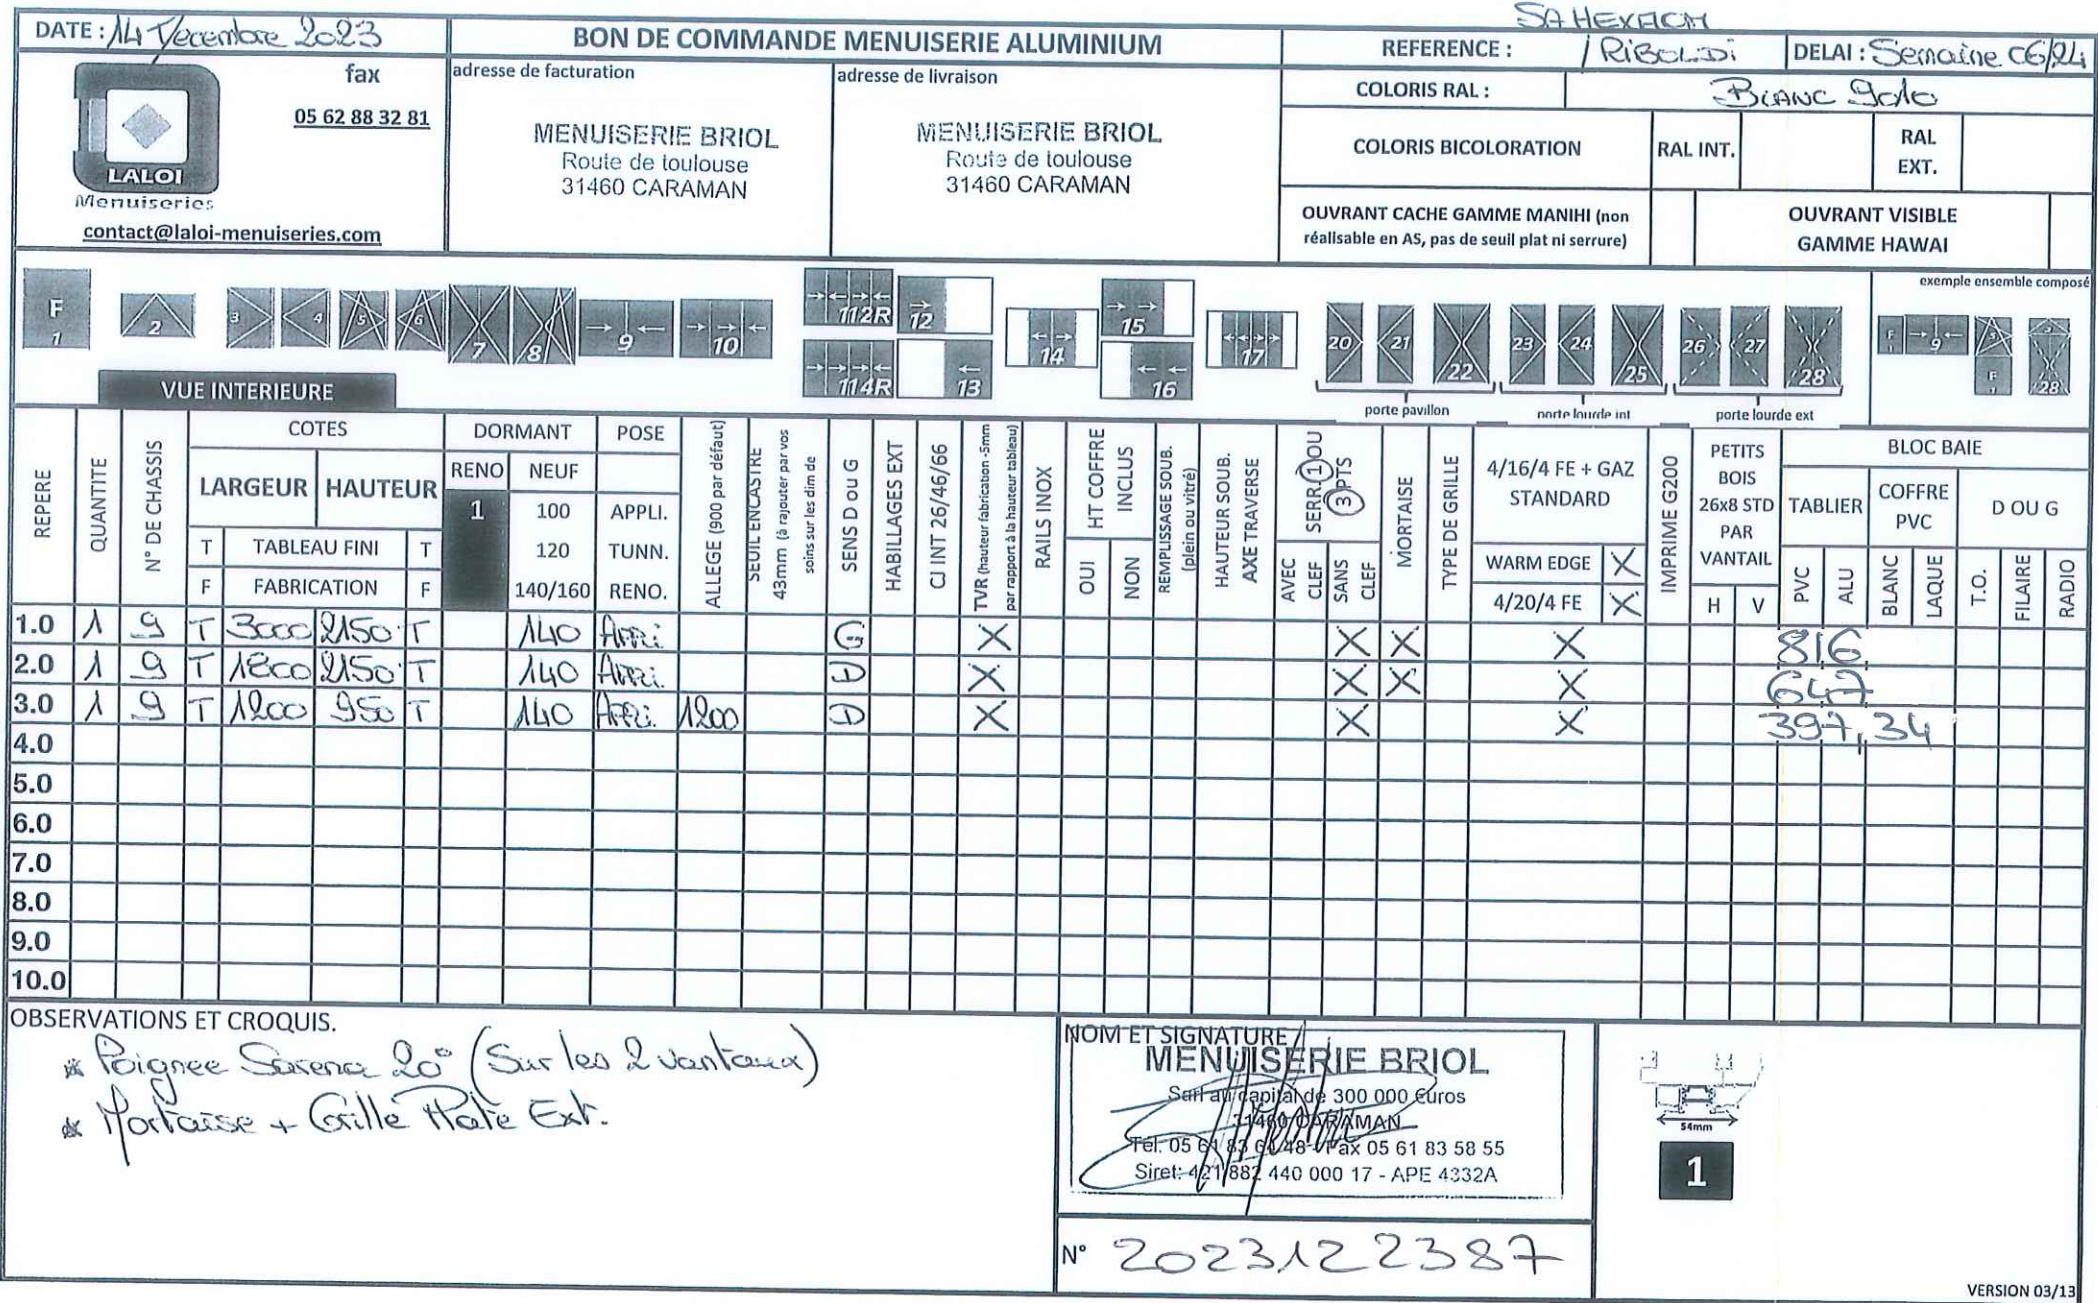 SA HEXACM
DATE : 14 Décembre 2023
BON DE COMMANDE MENUISERIE ALUMINIUM
REFERENCE : / RIBOLDI
DELAI : Semaine 06/24
fax
05 62 88 32 81
LALOI
Menuiseries
contact@laloi-menuiseries.com
adresse de facturation
MENUISERIE BRIOL
Route de toulouse
31460 CARAMAN
adresse de livraison
MENUISERIE BRIOL
Route de toulouse
31460 CARAMAN
COLORIS RAL : BLANC 9010
COLORIS BICOLORATION RAL INT. RAL EXT.
OUVRANT CACHE GAMME MANIHI (non
réalisable en AS, pas de seuil plat ni serrure)
OUVRANT VISIBLE
GAMME HAWAI
F 1 2 3 4 5 6 7 8 9 10 112R 114R 12 13 14 15 16 17 20 21 22 23 24 25 26 27 28
exemple ensemble composé
F 9 F 28
VUE INTERIEURE
porte pavillon
porte lourde int
porte lourde ext
REPERE
QUANTITE
N° DE CHASSIS
COTES
LARGEUR HAUTEUR
T TABLEAU FINI T
F FABRICATION F
DORMANT
RENO NEUF
1 100
120
140/160
POSE
APPLI.
TUNN.
RENO.
ALLEGE (900 par défaut)
SEUIL ENCASTRE
43mm (à rajouter par vos
soins sur les dim de
SENS D ou G
HABILLAGES EXT
CJ INT 26/46/66
TVR (hauteur fabrication -5mm
par rapport à la hauteur tableau)
RAILS INOX
HT COFFRE
INCLUS
OUI NON
REMPLISSAGE SOUB.
(plein ou vitré)
HAUTEUR SOUB.
AXE TRAVERSE
SERR. 1 OU
3 PTS
AVEC CLEF
SANS CLEF
MORTAISE
TYPE DE GRILLE
4/16/4 FE + GAZ
STANDARD
WARM EDGE X
4/20/4 FE X
IMPRIME G200
PETITS
BOIS
26x8 STD
PAR
VANTAIL
H V
BLOC BAIE
TABLIER
PVC ALU
COFFRE
PVC
BLANC LAQUE
D OU G
T.O. FILAIRE RADIO
1.0 1 9 T 3000 2150 T 140 Appli G X X X X 816
2.0 1 9 T 1800 2150 T 140 Appli. D X X X X 647
3.0 1 9 T 1200 950 T 140 Appli. 1200 D X X X 397,34
4.0
5.0
6.0
7.0
8.0
9.0
10.0
OBSERVATIONS ET CROQUIS.
* Poignee Sarena 20° (Sur les 2 vantaux)
* Mortaise + Grille Plate Ext.
NOM ET SIGNATURE
MENUISERIE BRIOL
Sarl au capital de 300 000 Euros
31460 CARAMAN
Tél. 05 61 83 61 48 - Fax 05 61 83 58 55
Siret: 421 882 440 000 17 - APE 4332A
N° 2023122387
54mm
1
VERSION 03/13